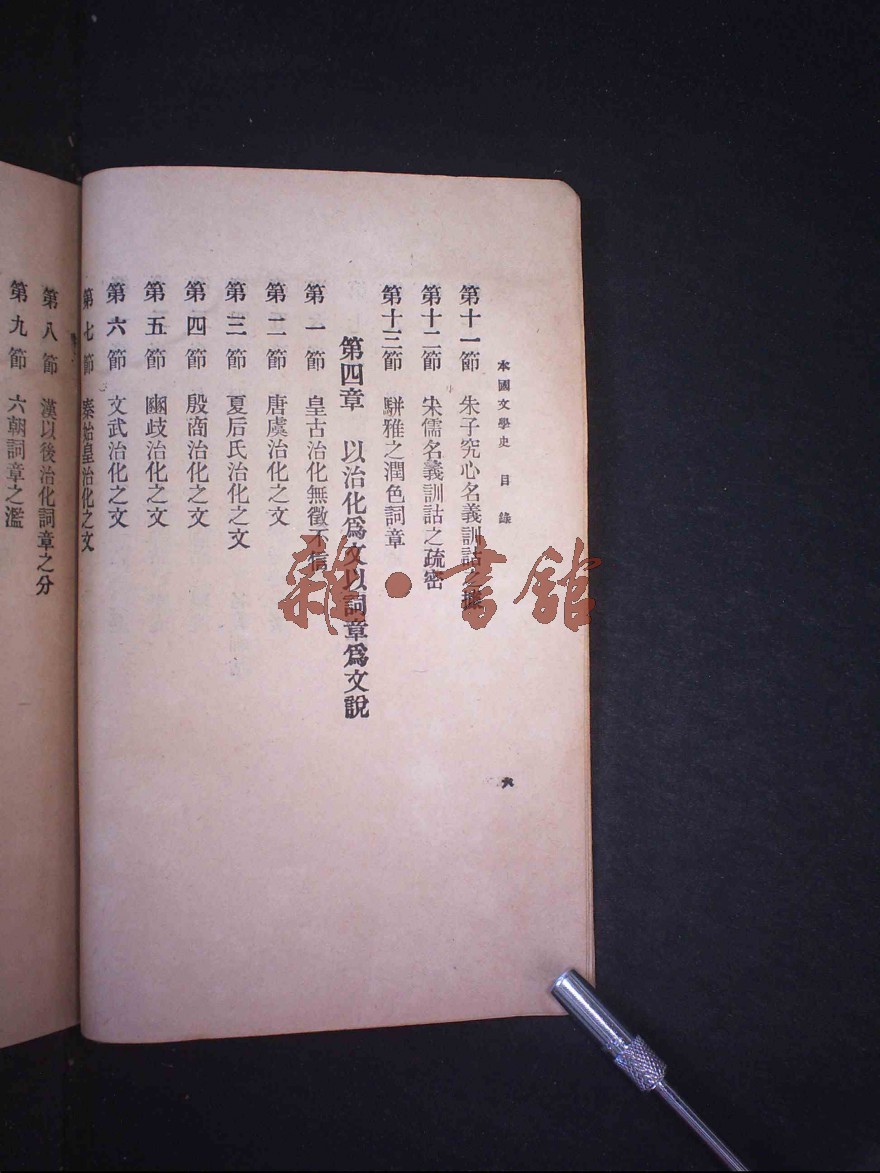 本國文學史 目錄
六
第十一節 朱子究心名義訓詁之據
第十二節 宋儒名義訓詁之疏密
第十三節 駢雅之潤色詞章
第四章 以治化爲文以詞章爲文說
第一節 皇古治化無徵不信
第二節 唐虞治化之文
第三節 夏后氏治化之文
第四節 殷商治化之文
第五節 豳歧治化之文
第六節 文武治化之文
第七節 秦始皇治化之文
第八節 漢以後治化詞章之分
第九節 六朝詞章之濫
雜·書館